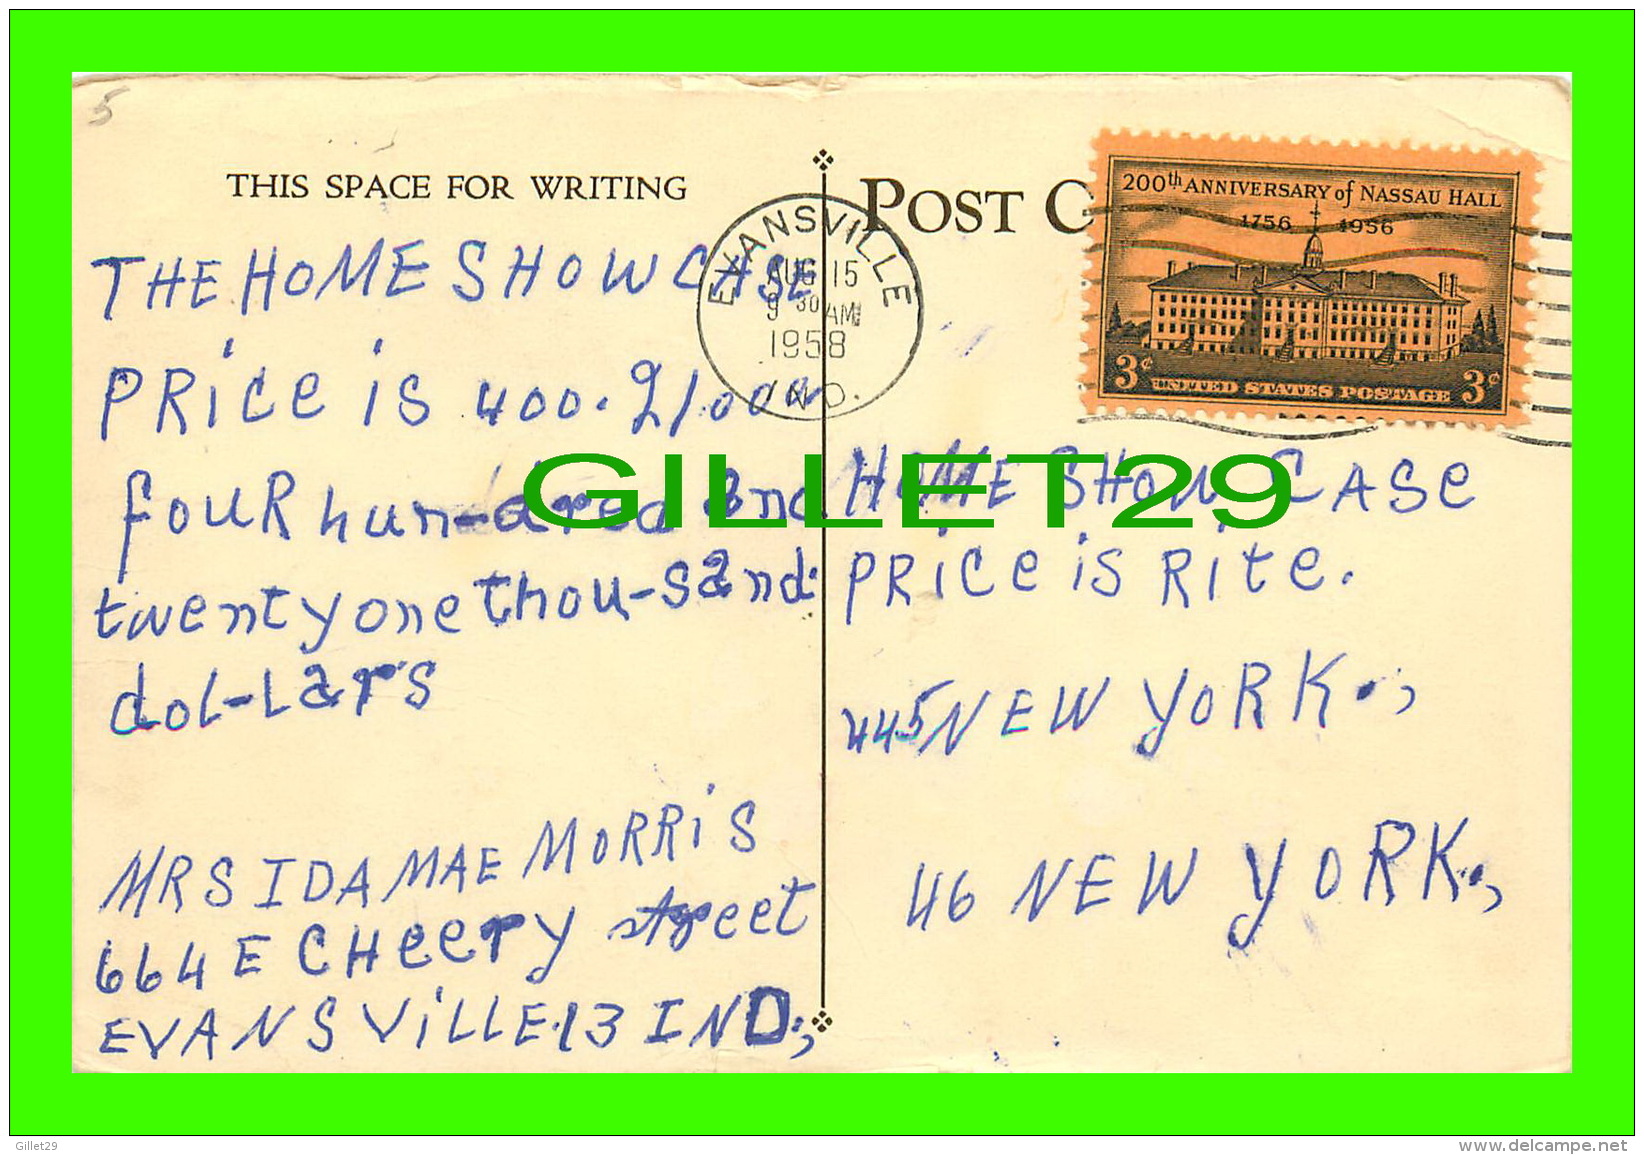 5
THIS SPACE FOR WRITING
THE HOME SHOW CASE
PRICE IS 400.21.000
FOUR hun-dred and
twenty one thou-sand
dol-lars
MRS IDA MAE MORRIS
664 E CHeerY street
EVANSVILLE 13 IND.,
EVANSVILLE
AUG 15
9 30 AM
1958
IND.
POST C
200th ANNIVERSARY of NASSAU HALL
1756 1956
3¢ UNITED STATES POSTAGE 3¢
HOME SHOW CASE
PRICE IS RITE.
445 NEW YORK.,
46 NEW YORK.,
GILLET29
Gillet29
www.delcampe.net